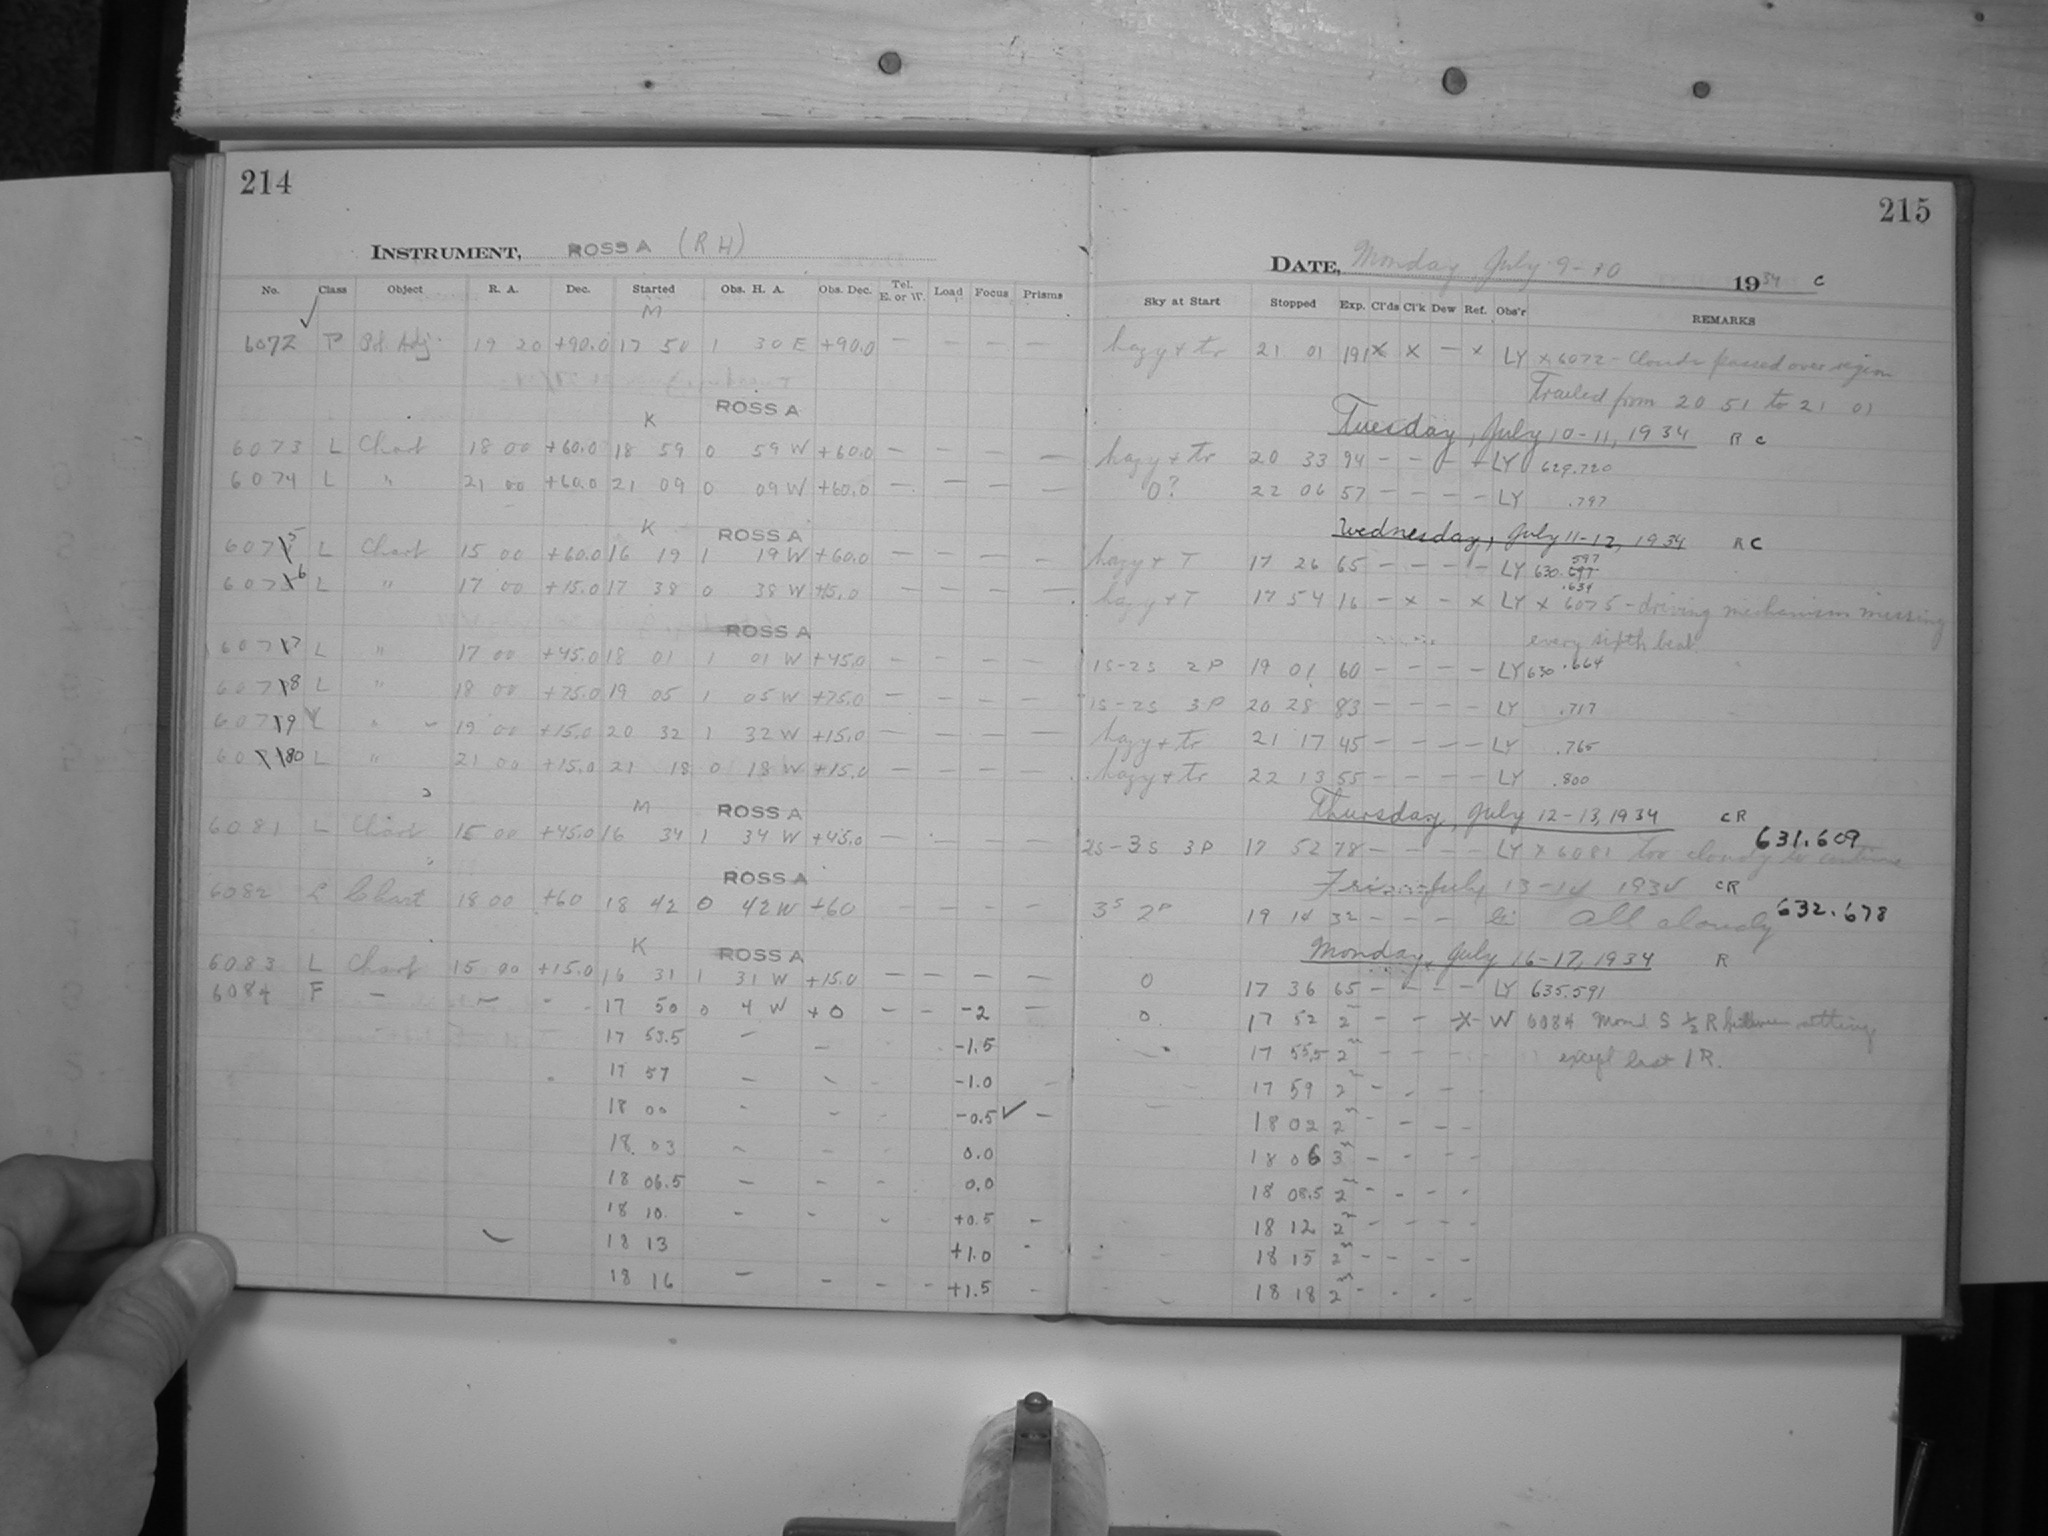 214
215
INSTRUMENT, ROSS A (RH)
DATE, Monday July 9-10 1934 C
No. Class Object R. A. Dec. Started Obs. H. A. Obs. Dec. Tel. E. or W. Load Focus Prisms Sky at Start Stopped Exp. Cl'ds Cl'k Dew Ref. Obs'r REMARKS
M
6072 P Pol Adj. 19 20 +90.0 17 50 1 30 E +90.0 — — — — hazy + tr 21 01 191 x x — x LY x 6072 - Clouds passed over region
Trailed from 20 51 to 21 01
K ROSS A Tuesday, July 10-11, 1934 R C
6073 L Chart 18 00 +60.0 18 59 0 59 W +60.0 — — — — hazy + tr 20 33 94 — — — — LY 629.720
6074 L " 21 00 +60.0 21 09 0 09 W +60.0 — — — — 0? 22 06 57 — — — — LY .797
K ROSS A Wednesday, July 11-12, 1934 R C
6075 L Chart 15 00 +60.0 16 19 1 19 W +60.0 — — — — hazy + T 17 26 65 — — — — LY 630.697 597
6076 L " 17 00 +15.0 17 38 0 38 W +15.0 — — — — hazy + T 17 54 16 — x — x LY .634 x 6075 - driving mechanism missing
every sixth beat
ROSS A
6077 L " 17 00 +45.0 18 01 1 01 W +45.0 — — — — 1S-2S 2P 19 01 60 — — — — LY 630.664
6078 L " 18 00 +75.0 19 05 1 05 W +75.0 — — — — 1S-2S 3P 20 28 83 — — — — LY .717
6079 L " 19 00 +15.0 20 32 1 32 W +15.0 — — — — hazy + tr 21 17 45 — — — — LY .765
6080 L " 21 00 +15.0 21 18 0 18 W +15.0 — — — — hazy + tr 22 13 55 — — — — LY .800
M ROSS A Thursday, July 12-13, 1934 C R
6081 L Chart 15 00 +45.0 16 34 1 34 W +45.0 — — — — 2S-3S 3P 17 52 78 — — — — LY x 6081 too cloudy to continue 631.609
ROSS A Fri. July 13-14 1934 C R
6082 L Chart 18 00 +60 18 42 0 42 W +60 — — — — 3S 2P 19 14 32 — — — All cloudy 632.678
K ROSS A Monday, July 16-17, 1934 R
6083 L Chart 15 00 +15.0 16 31 1 31 W +15.0 — — — — 0 17 36 65 — — — — LY 635.591
6084 F — — — 17 50 0 4 W +0 — — -2 — 0 17 52 2m — — x W 6084 Moved S ½ R between settings
17 53.5 — — -1.5 17 55.5 2m — — — except last 1 R.
17 57 — — — -1.0 — 17 59 2m — — — —
18 00 — — — -0.5 ✓ — 18 02 2m — — — —
18 03 — — — 0.0 18 06 3m — — — —
18 06.5 — — — 0.0 18 08.5 2m — — — —
18 10 — — — +0.5 — 18 12 2m — — — —
18 13 +1.0 — 18 15 2m — — — —
18 16 — — — — +1.5 — 18 18 2m — — — —